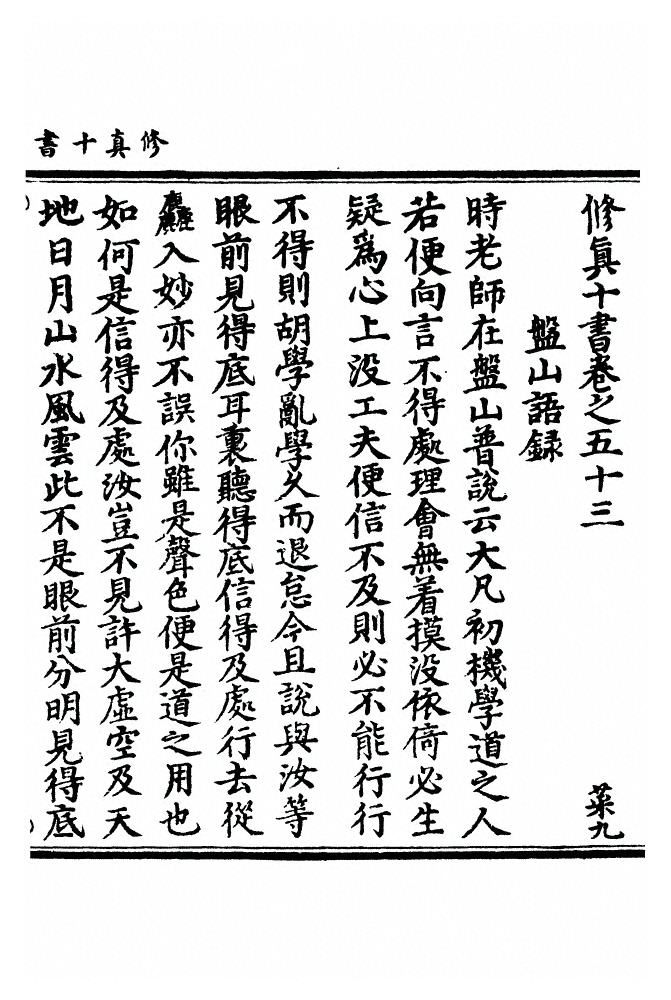 修真十書
修眞十書卷之五十三 菜九
盤山語録
時老師在盤山普說云大凡初機學道之人
若便向言不得處理會無着摸没依倚必生
疑爲心上没工夫便信不及則必不能行行
不得則胡學亂學久而退怠今且說與汝等
眼前見得底耳裏聽得底信得及處行去從
麤入妙亦不誤你雖是聲色便是道之用也
如何是信得及處汝豈不見許大虛空及天
地日月山水風雲此不是眼前分明見得底